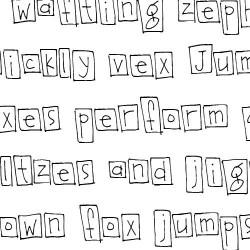 wafting zeph
ickly vex Jum
xes perform
ltzes and jig
own fox jumps